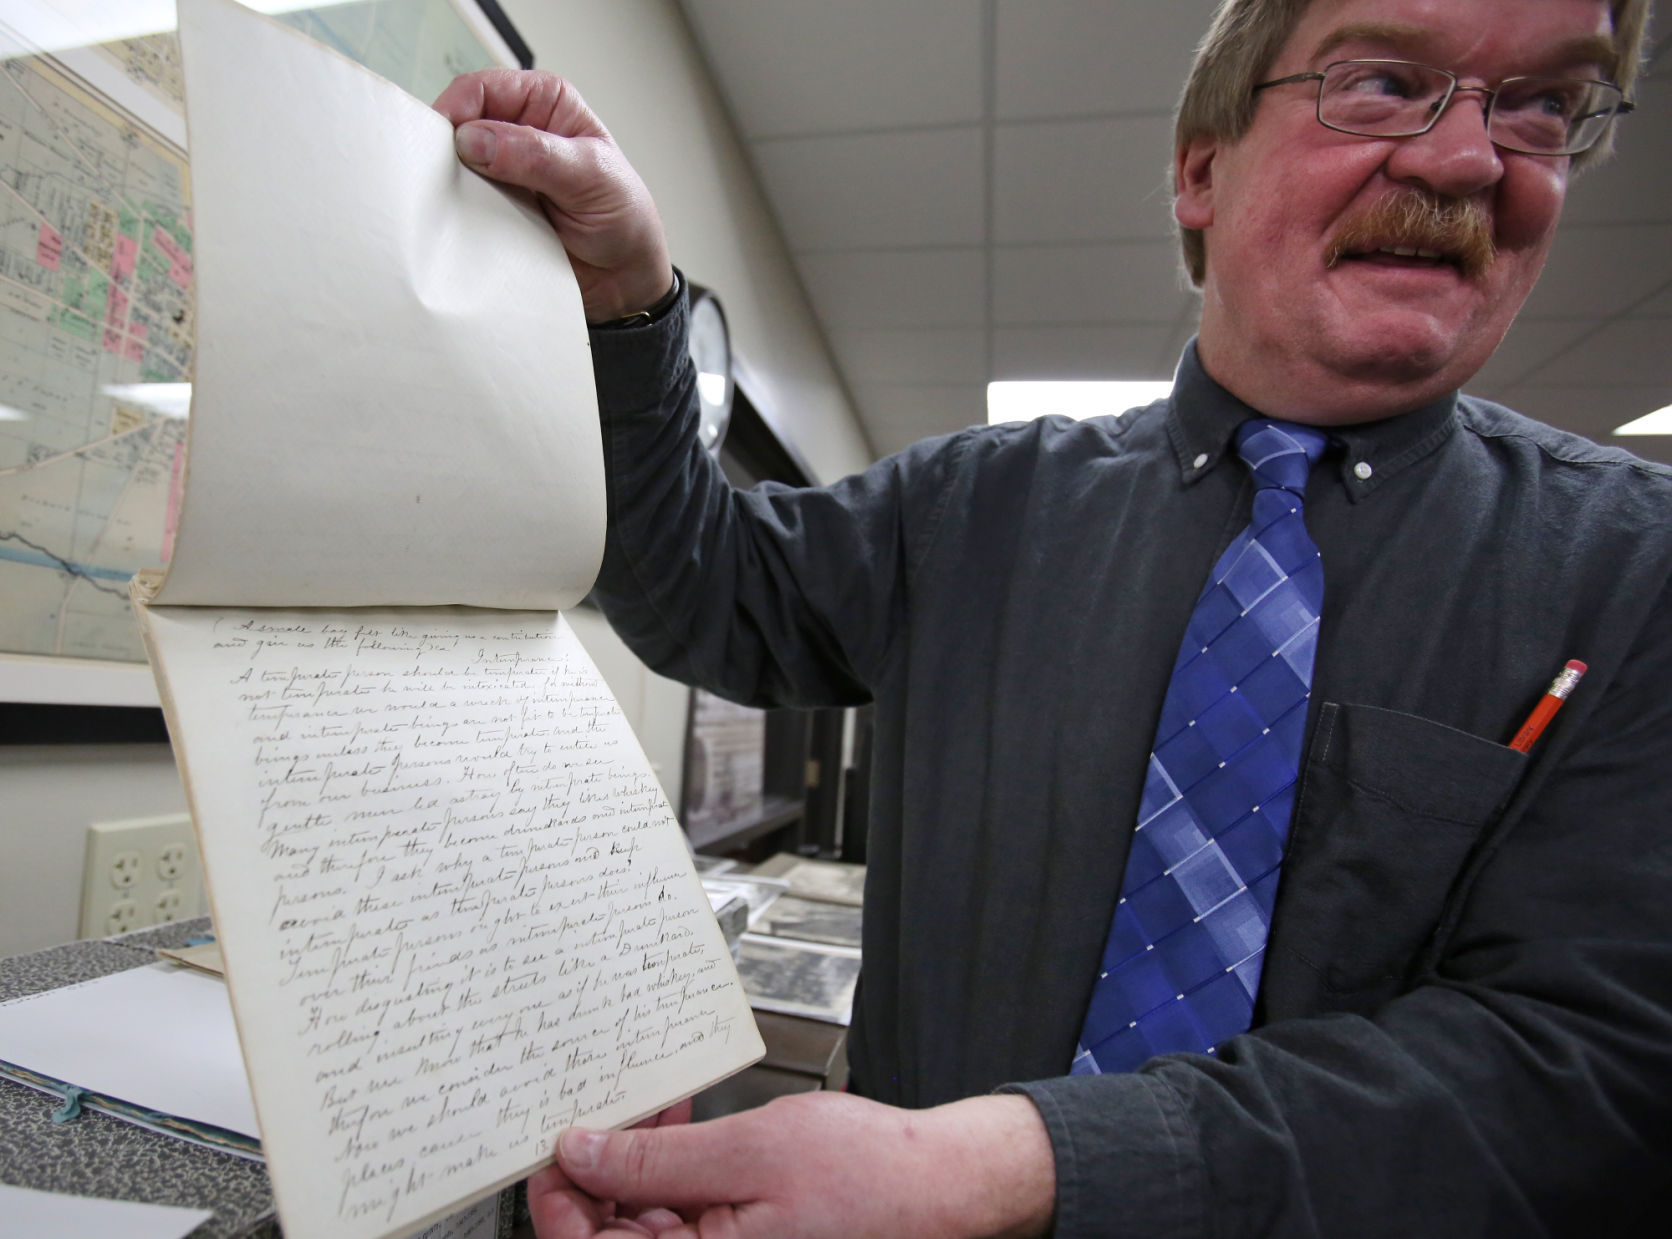 ( A small boy felt like giving us a contribution
and give us the following Ex!
Intemperance!
A temperate person should be temperate if he is
not temperate he will be intoxicated, for without
temperance we would a wreck of intemperance
and intemperate beings are not fit to be temperate
beings unless they become temperate. And the
intemperate persons would try to entice us
from our business. How often do we see
gentle men led astray by intemperate beings.
Many intemperate persons say they likes whiskey
and therefore they become drunkards and intemperate
persons. I ask why a temperate person could not
avoid these intemperate persons and keep
intemperate as temperate persons does?
Temperate persons ought to exert their influence
over their friends as intemperate persons do.
How disgusting it is to see a intemperate person
rolling about the streets like a Drunkard,
and insulting every one as if he was temperate,
But we know that he has drunk bad whiskey, and
therefore we consider the source of his temperance.
Now we should avoid those intemperance
places, cause they is bad influence, and they
might make us temperate.
13